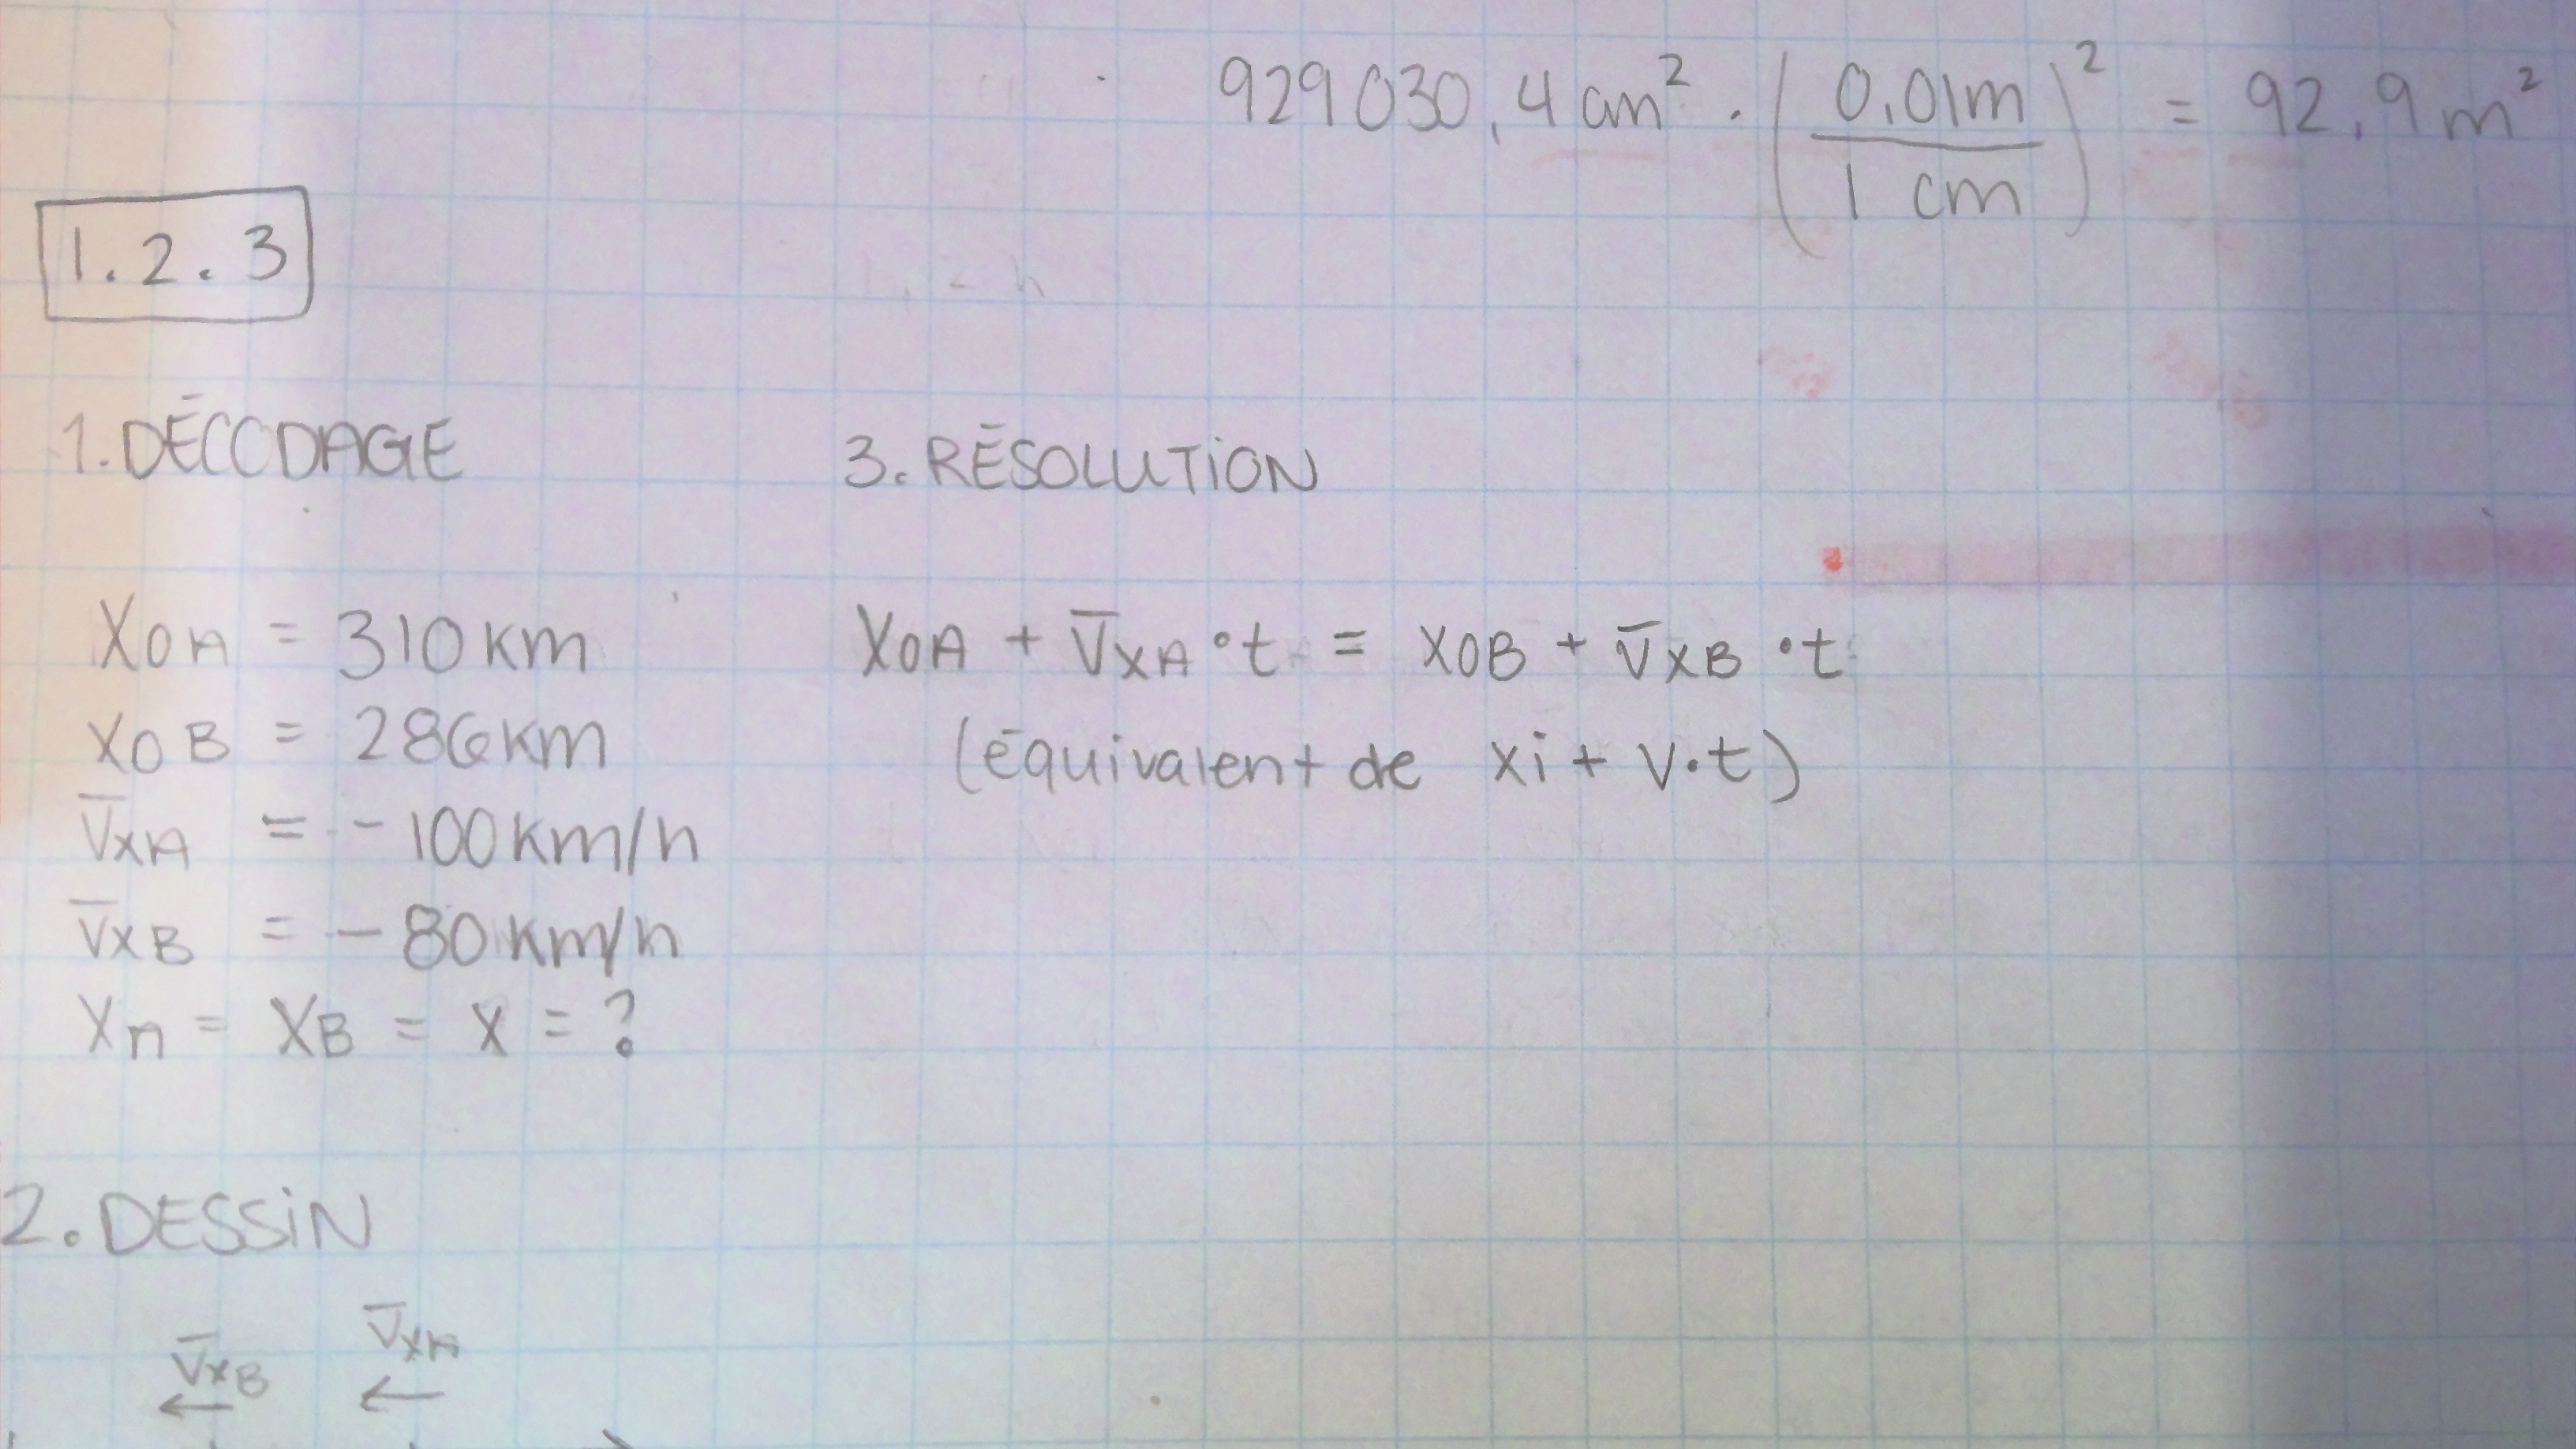 929030,4 cm² · (0,01m / 1 cm)² = 92,9 m²
1.2.3
1. DÉCODAGE
X0A = 310 km
X0B = 286 km
V̄XA = -100 km/h
V̄XB = -80 km/h
XA = XB = X = ?
2. DESSIN
V̄XB
V̄XA
3. RÉSOLUTION
X0A + V̄XA · t = X0B + V̄XB · t
(équivalent de xi + v·t)